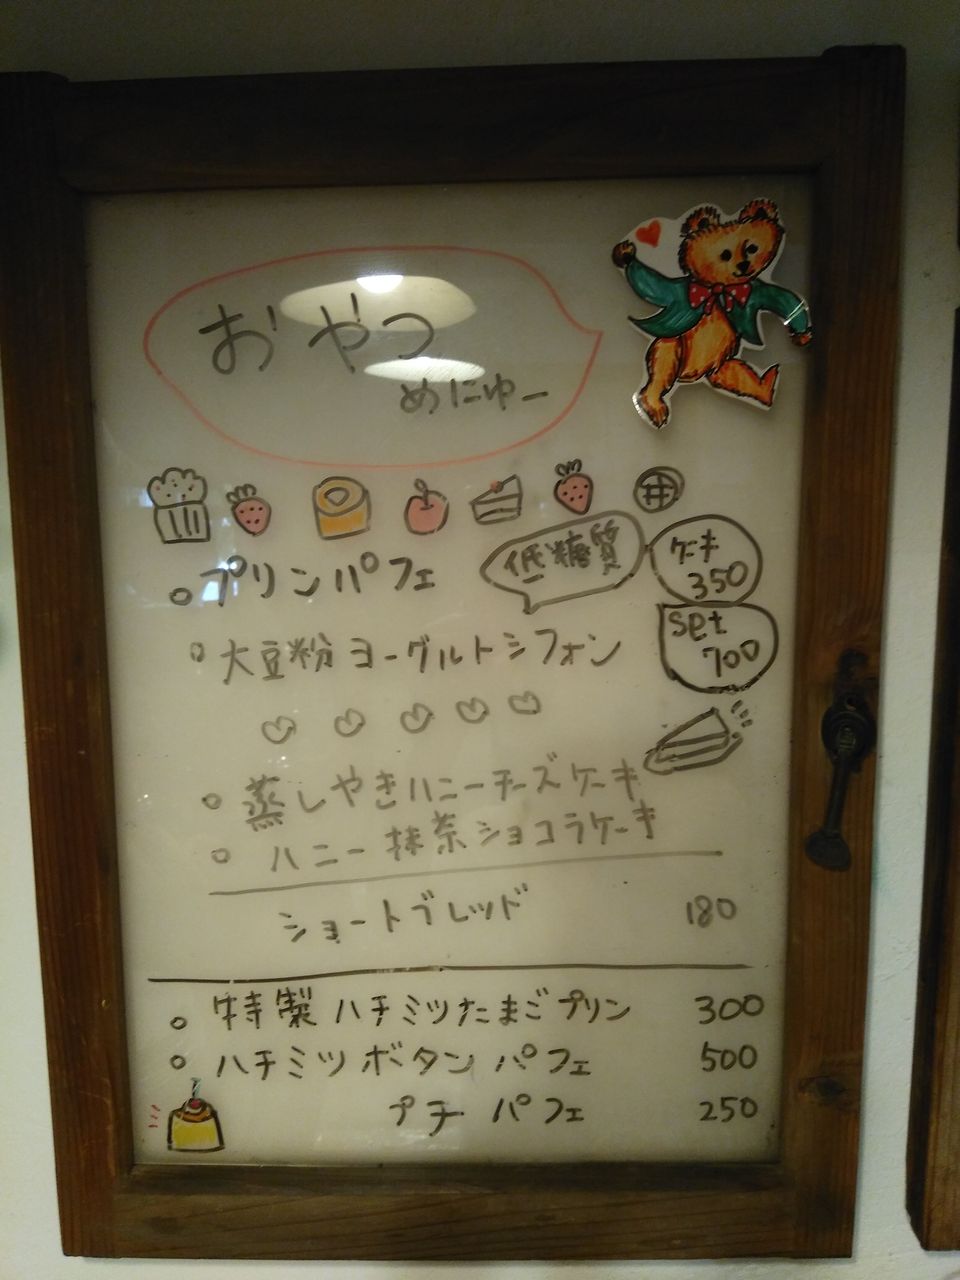 おやつ
めにゅー
プリンパフェ
低糖質
ケーキ
350
set
700
大豆粉ヨーグルトシフォン
蒸しやきハニーチーズケーキ
ハニー抹茶ショコラケーキ
ショートブレッド 180
特製ハチミツたまごプリン 300
ハチミツボタンパフェ 500
プチパフェ 250